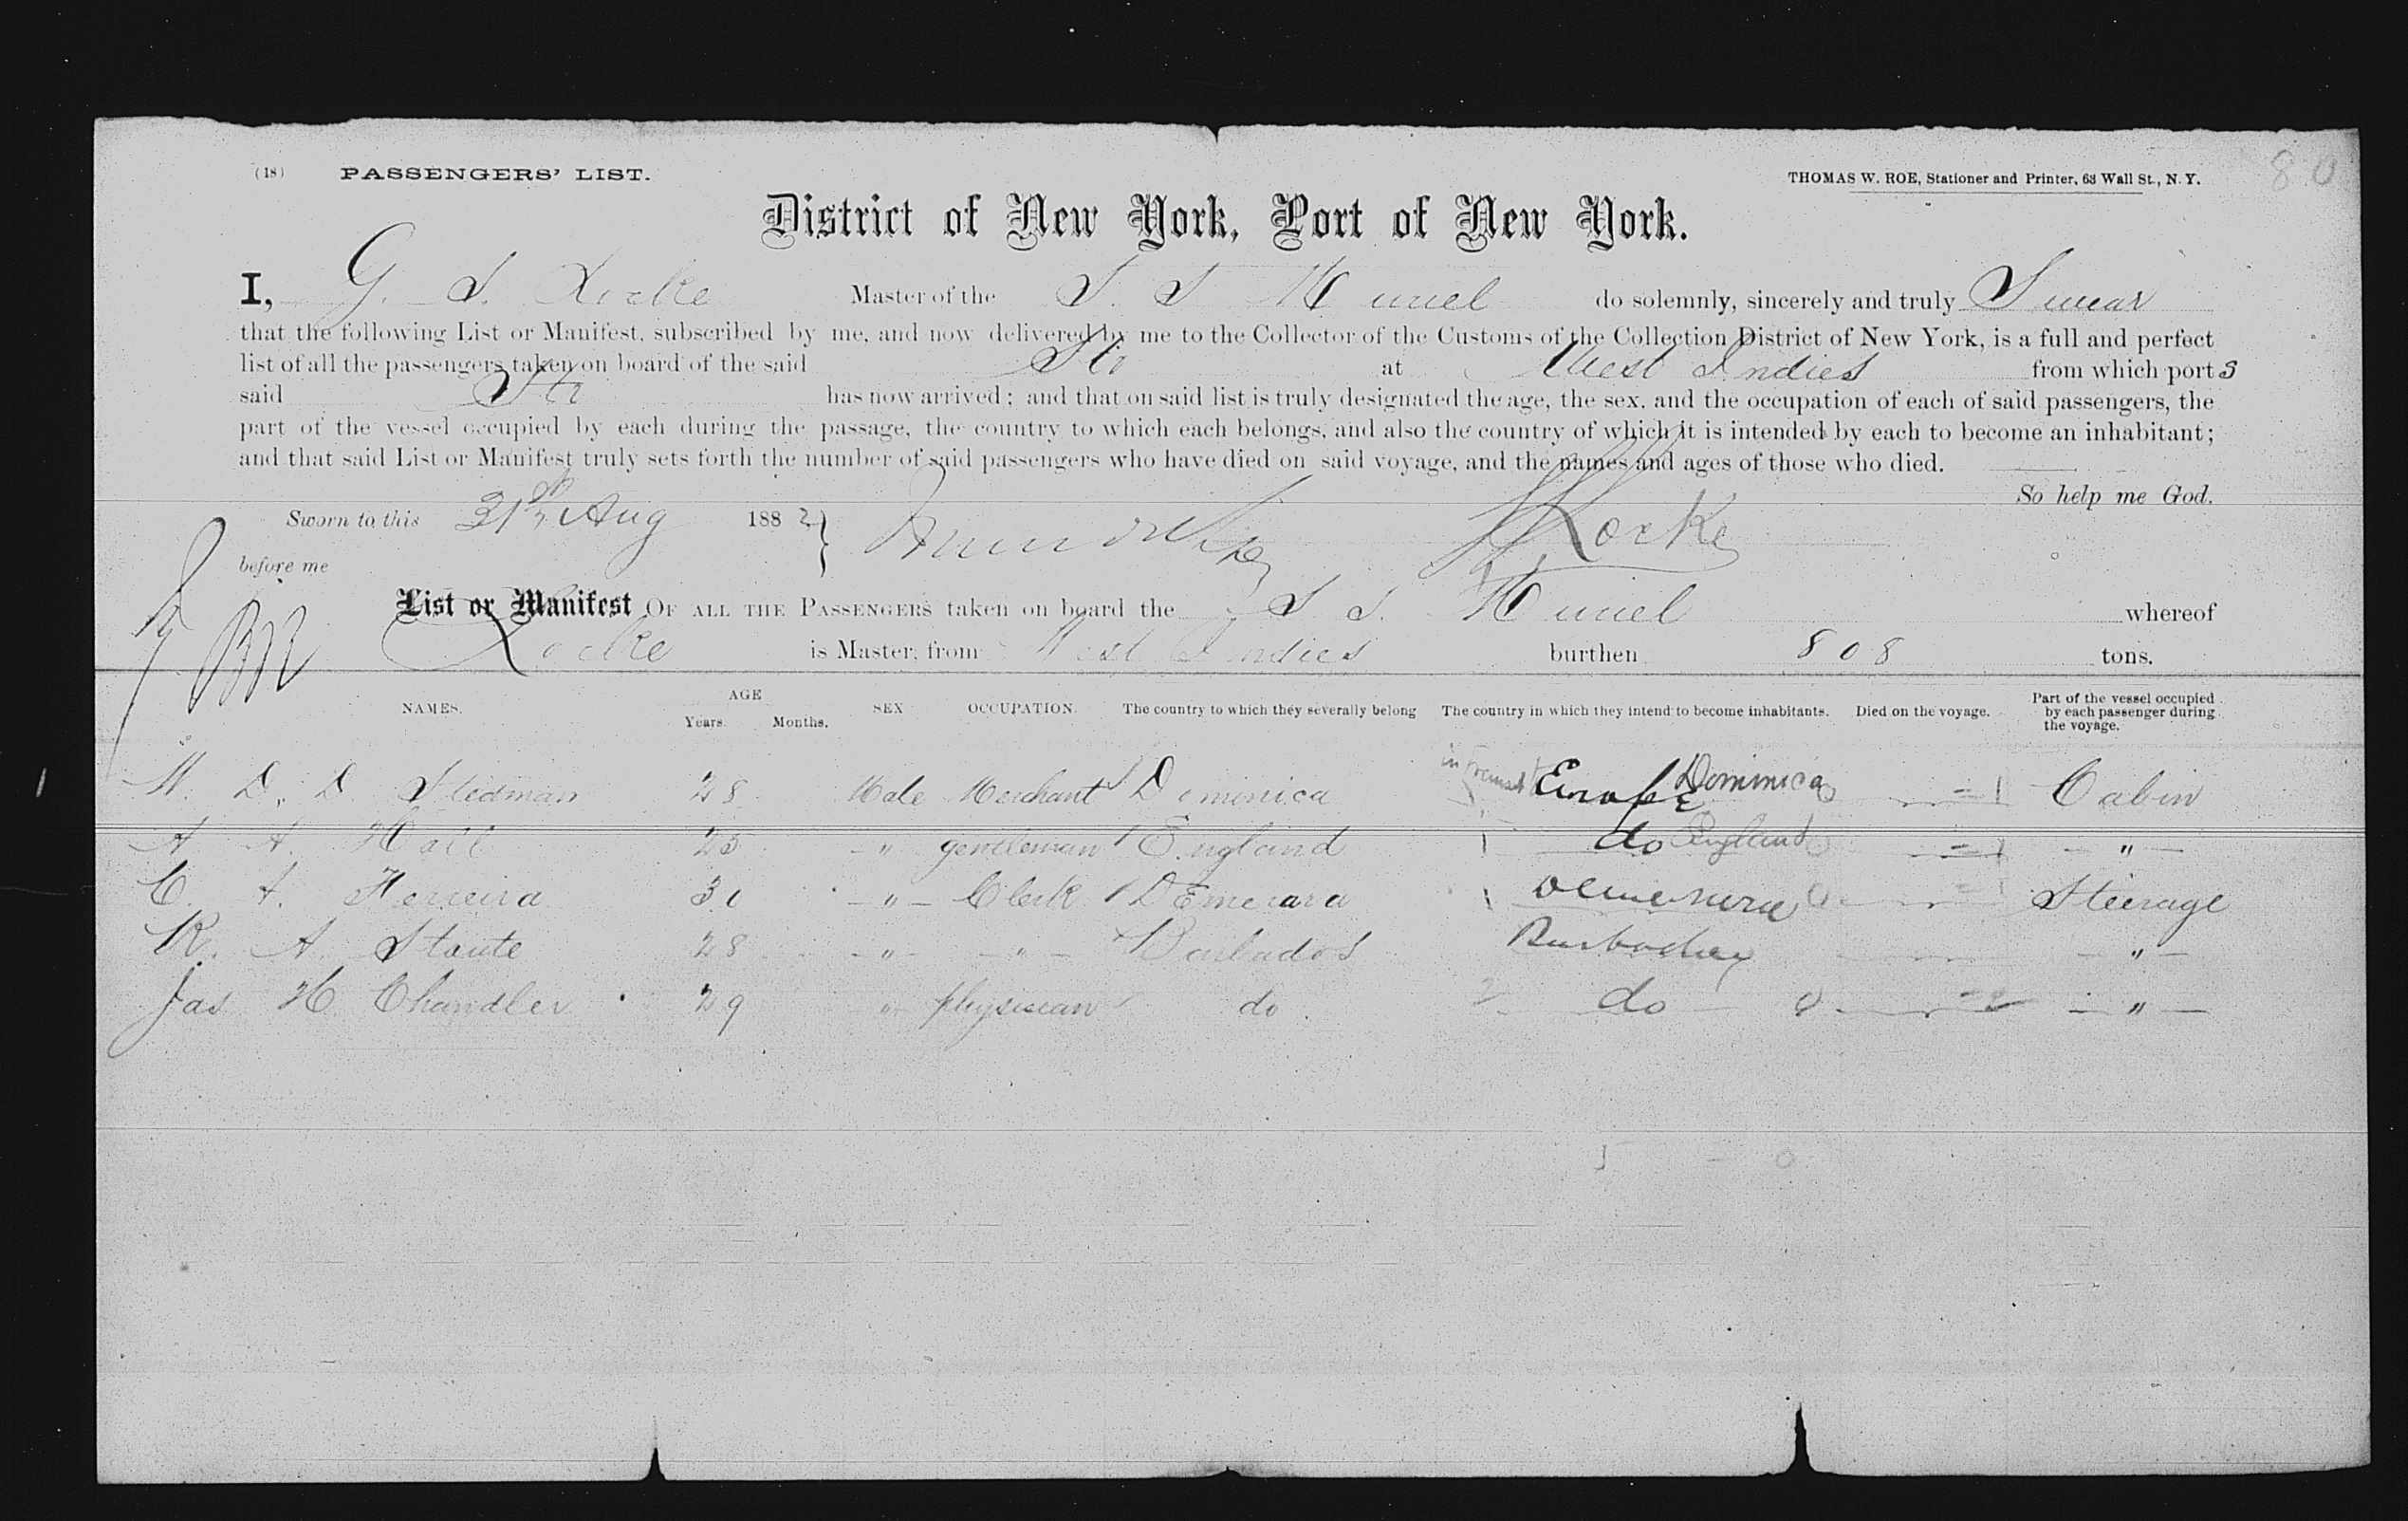 80
(18) PASSENGERS' LIST. THOMAS W. ROE, Stationer and Printer, 63 Wall St., N. Y.
District of New York, Port of New York.
I, G. S. Locke Master of the S. S Muriel do solemnly, sincerely and truly Swear
that the following List or Manifest, subscribed by me, and now delivered by me to the Collector of the Customs of the Collection District of New York, is a full and perfect
list of all the passengers taken on board of the said Str at West Indies from which port s
said Str has now arrived; and that on said list is truly designated the age, the sex, and the occupation of each of said passengers, the
part of the vessel occupied by each during the passage, the country to which each belongs, and also the country of which it is intended by each to become an inhabitant;
and that said List or Manifest truly sets forth the number of said passengers who have died on said voyage, and the names and ages of those who died.
So help me God.
Sworn to this 31st Aug 1882 Locke
before me
List or Manifest OF ALL THE PASSENGERS taken on board the S S. Muriel whereof
Locke is Master, from West Indies burthen 808 tons.
NAMES. AGE Years. Months. SEX OCCUPATION. The country to which they severally belong The country in which they intend to become inhabitants. Died on the voyage. Part of the vessel occupied by each passenger during the voyage.
M. D. D Stedman 28 Male Merchant Dominica in transit Europe Dominica Cabin
A A. Hall 25 " gentleman England do England "
C. A. Ferreira 30 " Clerk DEmerara Demerara Steerage
R. A. Stoute 28 " " Barbados Barbadoes "
Jas H Chandler 29 " physician do. do "